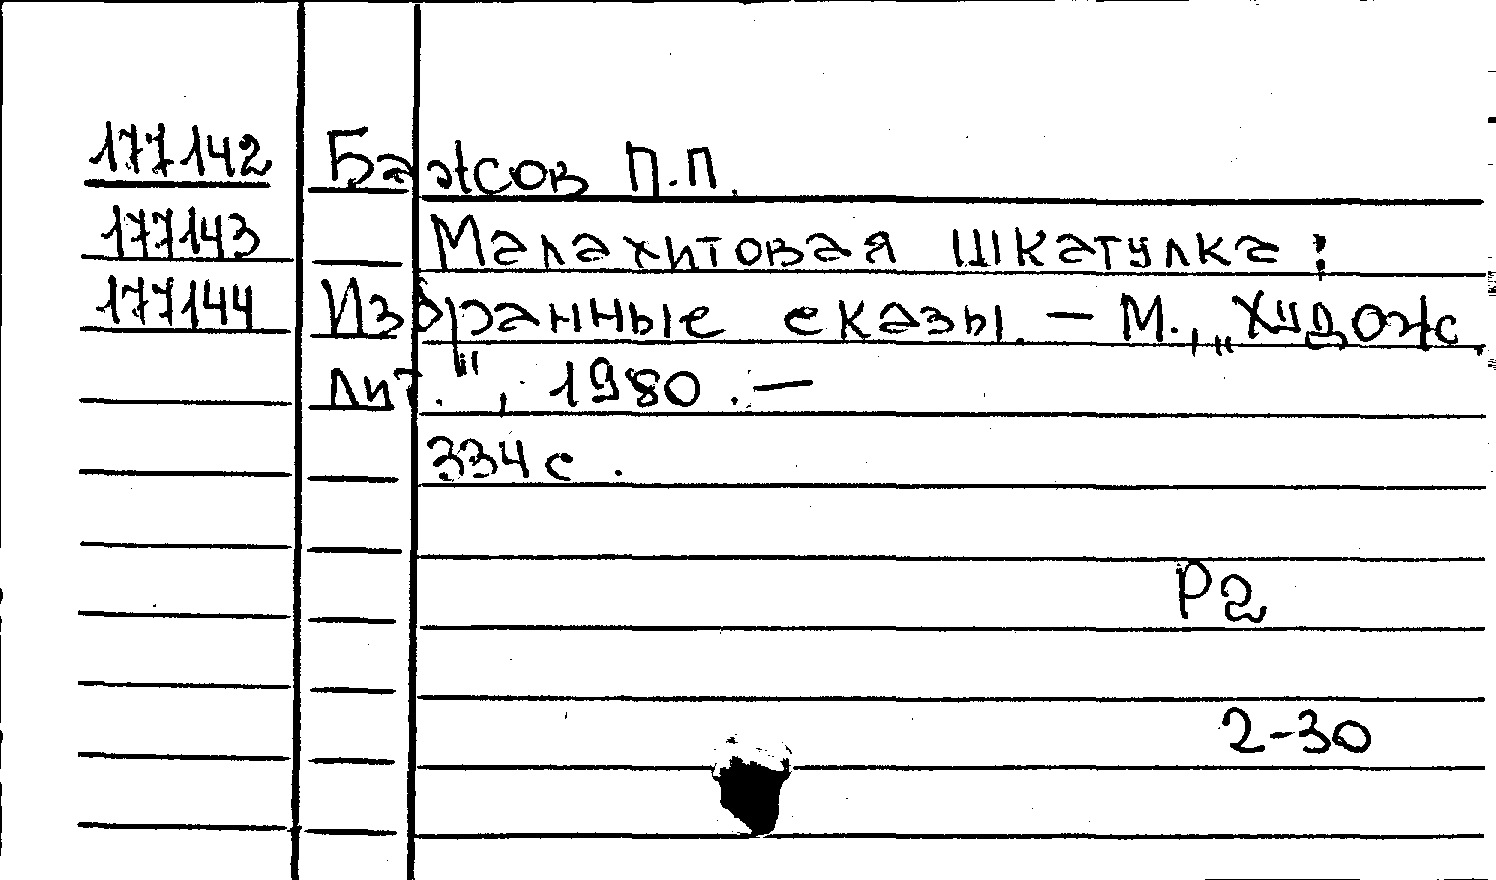 177142 Бажов П.П.
177143 Малахитовая шкатулка:
177144 Избранные сказы. – М., „Худож.
лит.", 1980. –
334 с.
Р2
2-30